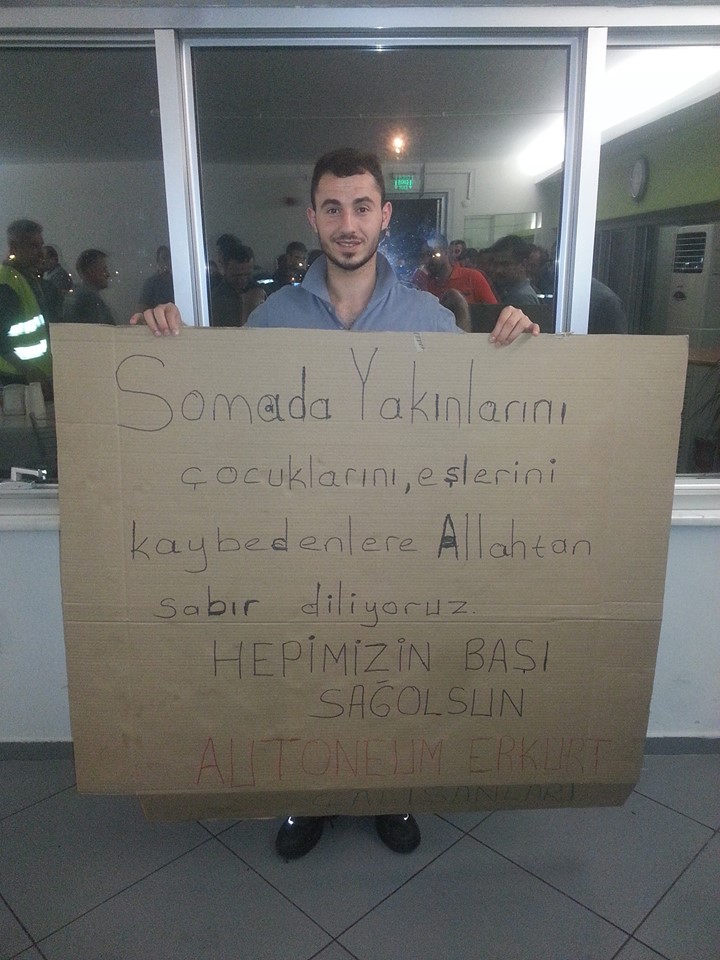 Somada Yakınlarını
çocuklarını, eşlerini
kaybedenlere Allahtan
sabır diliyoruz.
HEPİMİZİN BAŞI
SAĞOLSUN
AUTONEUM ERKURT
ÇALIŞANLARI